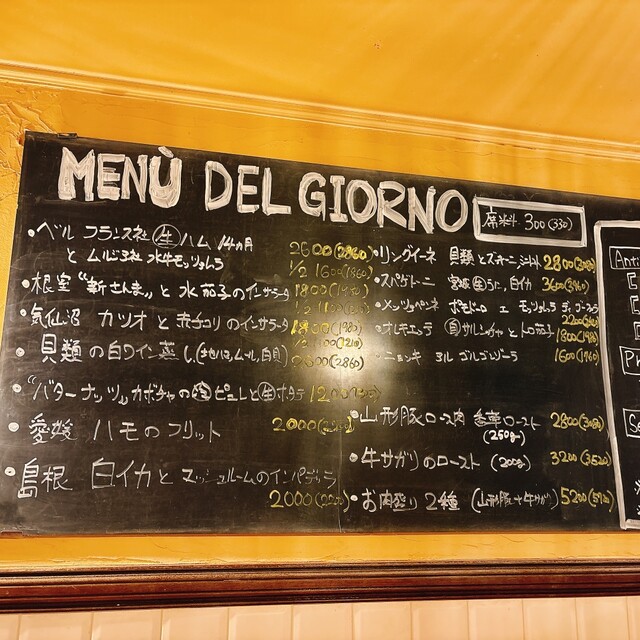 MENÙ DEL GIORNO
席料 300(330)
・ベル フランス社 生ハム 14ヵ月
と 水牛モッツァレラ 2600(2860)
1/2 1600(1760)
・根室 "新さんま" と 水茄子のインサラータ 1800
1/2 1100
・気仙沼 カツオと赤チコリのインサラータ 1800(1980)
1/2 1100(1210)
・貝類の白ワイン蒸し(地ハマ,ムール,白貝) 2600(2860)
・"バターナッツ"カボチャの ピュレと生ホタテ 1200
・愛媛 ハモのフリット 2000
・島根 白イカとマッシュルームのインパデッラ
2000
・リングイーネ 貝類とズッキーニ 2800(3080)
・スパゲトーニ 宮城 生うに,白イカ 3600(3960)
・メッツェペンネ ポモドーロ エ モッツァレラ 2200
・オレキエッテ 自サルシッチャとトロ茄子 1800(1980)
・ニョッキ アル ゴルゴンゾーラ 1600(1760)
・山形豚ロース肉 香草ロースト 2800(3080)
(250g)
・牛サガリのロースト (200g) 3200(3520)
・お肉盛り2種 (山形豚+牛サガリ) 5200(5720)
Anti
P
Se